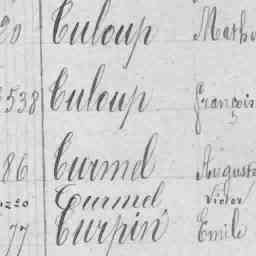 20 Culoup Math
538 Culoup François
86 Curmel Auguste
1220 Curmel Victor
77 Curpin Emile